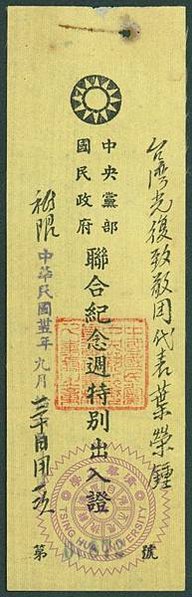 台灣光復致敬團代表葉榮鍾
中央黨部
國民政府
聯合紀念週特別出入證
祇限中華民國卅五年九月三十日用一次
第 號
TSING HUA UNIVERSITY